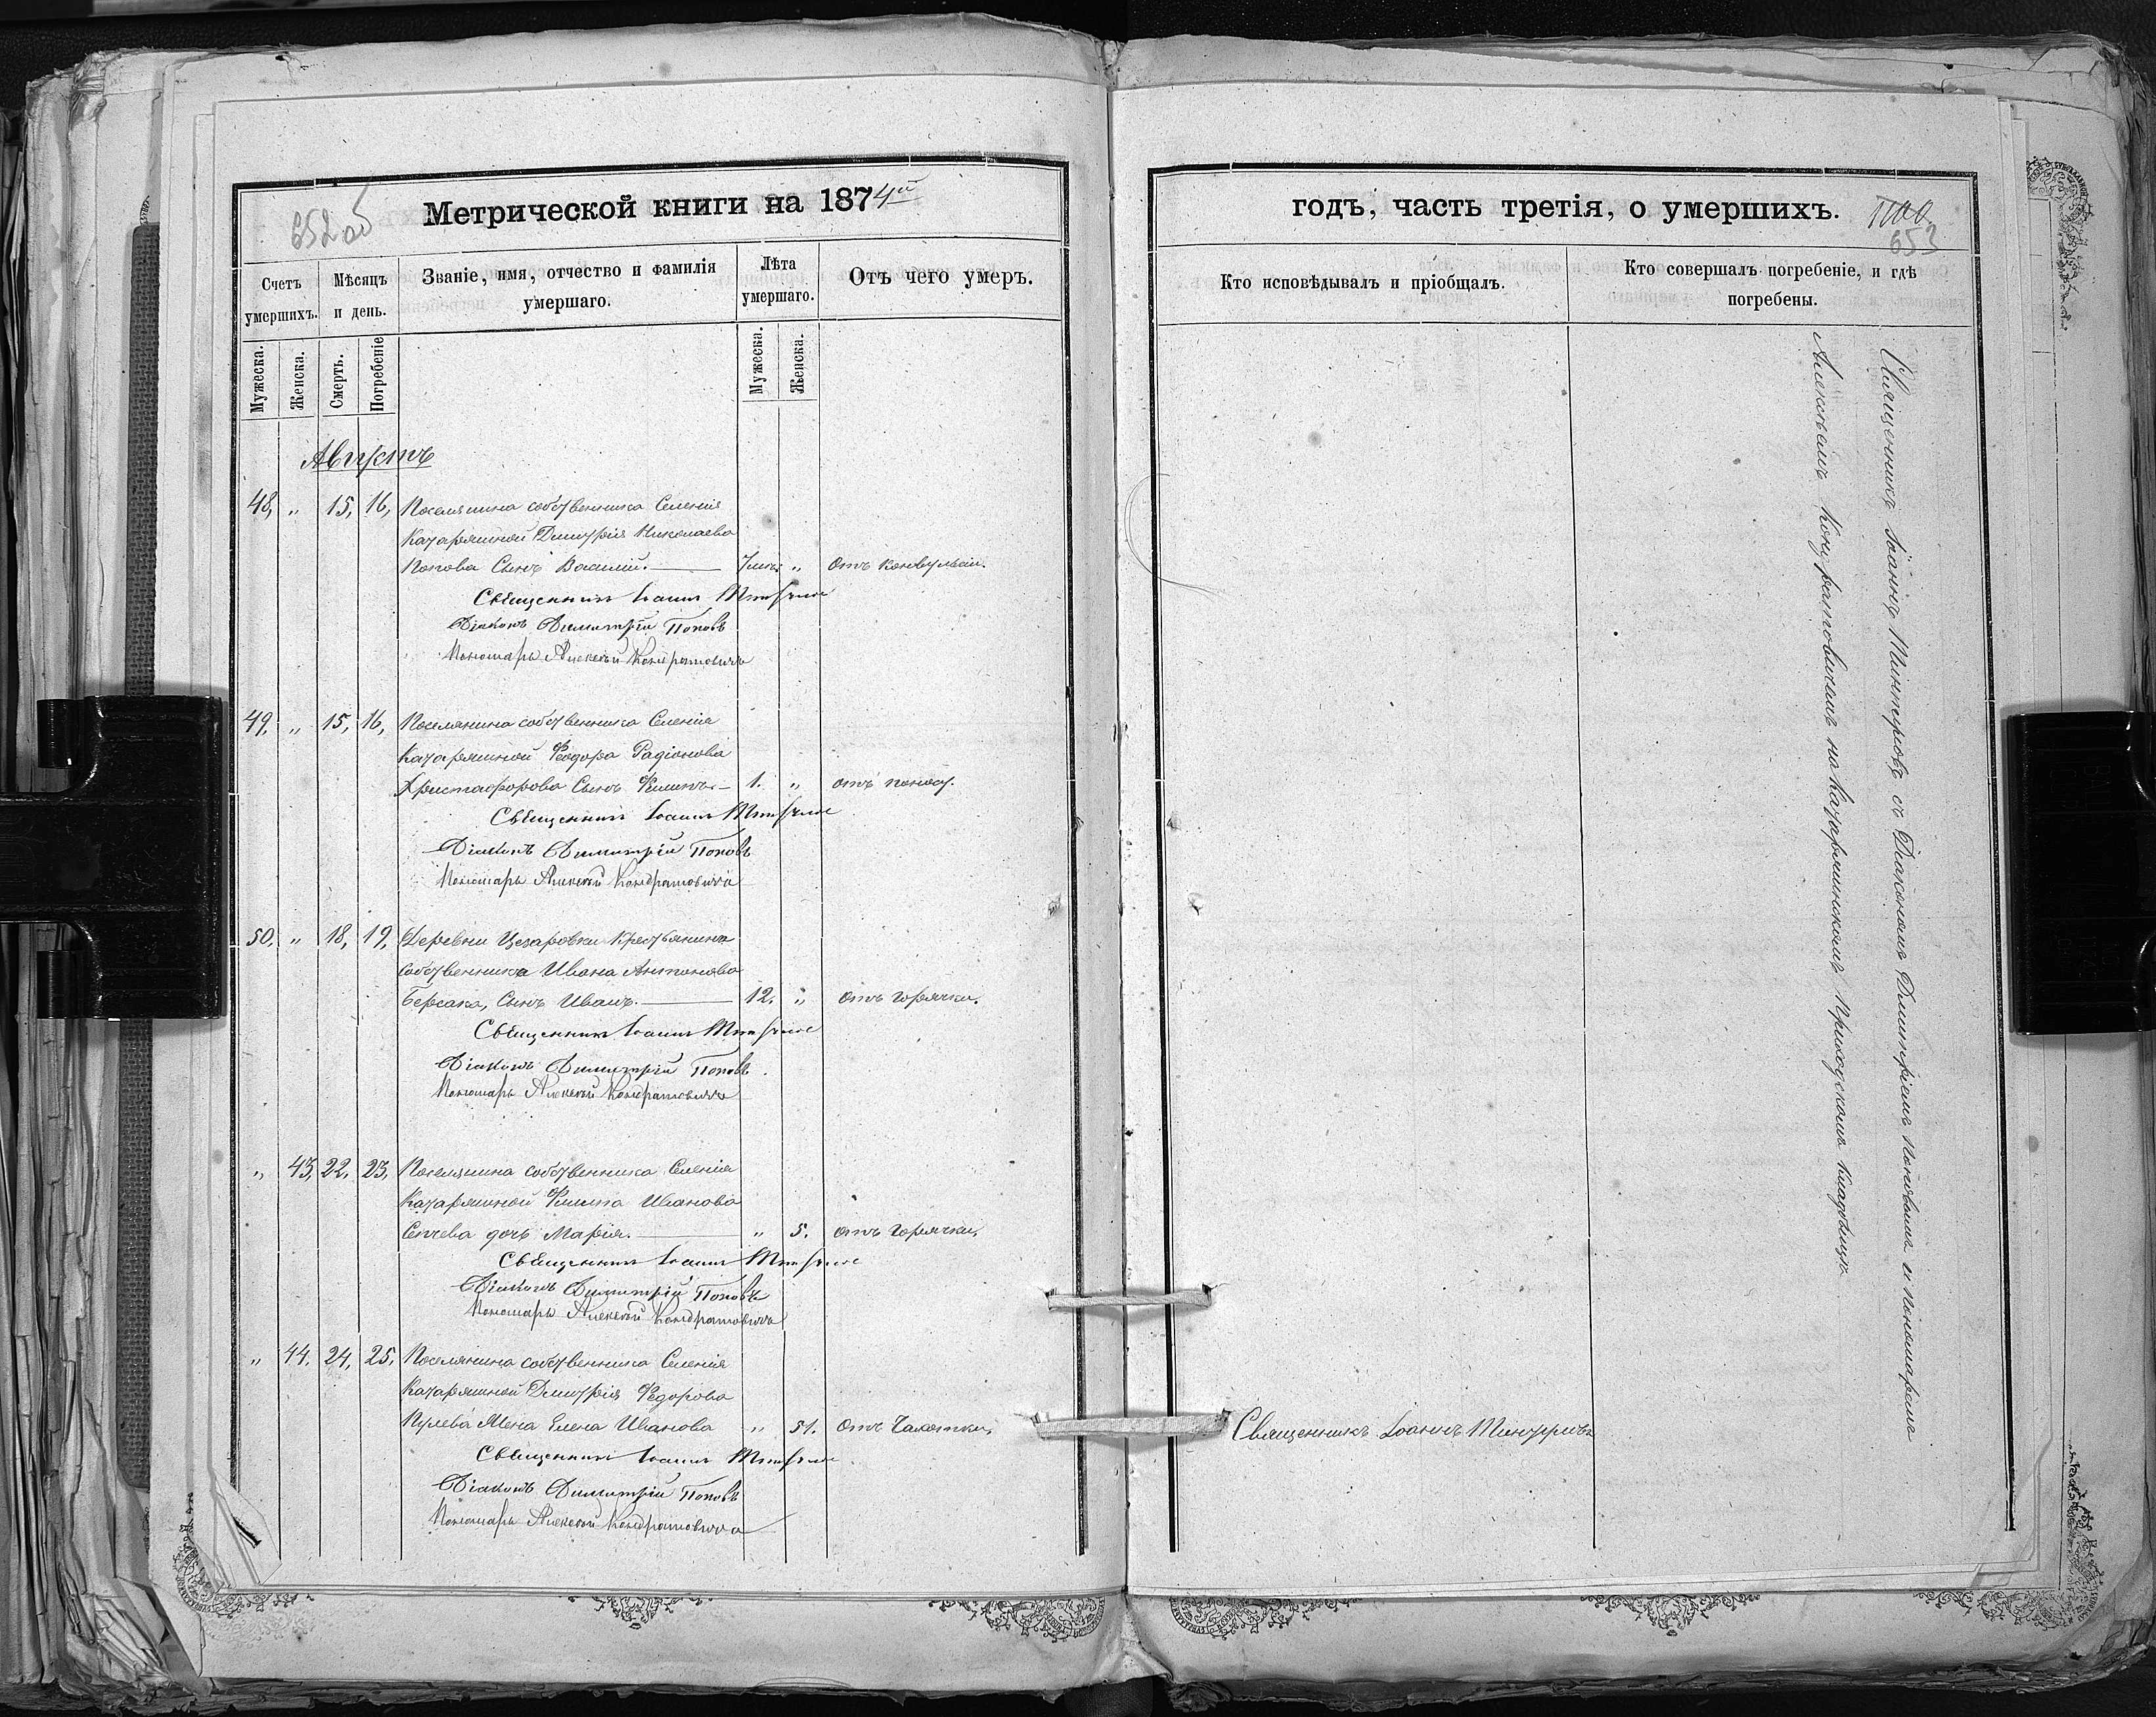 652 об
Метрической книги на 1874й
Счетъ умершихъ.
Мѣсяцъ и день.
Званіе, имя, отчество и фамилія умершаго.
Лѣта умершаго.
Отъ чего умеръ.
Мужеска.
Женска.
Смерть.
Погребеніе
Мужеска.
Женска.
Августъ
48, „ 15, 16, Поселянина собственника Селенія
Катаржиной Димитрія Николаева
Попова Сынъ Василій. „ отъ конвульсіи.
Священникъ Іоаннъ
Діаконъ Димитрій Поповъ
Пономарь Алексѣй Кондратовичъ
49, „ 15, 16, Поселянина собственника Селенія
Катаржиной Феодора Радіонова
Христофорова Сынъ Филипъ 1. „ отъ поносу.
Священникъ Іоаннъ
Діаконъ Димитрій Поповъ
Пономарь Алексѣй Кондратовичъ
50, „ 18, 19, Деревни Цезаровки Крестьянина
собственника Ивана Антонова
Берсака, Сынъ Иванъ. 12. „ отъ горячки.
Священникъ Іоаннъ
Діаконъ Димитрій Поповъ
Пономарь Алексѣй Кондратовичъ
„ 43, 22, 23, Поселянина собственника Селенія
Катаржиной Филипа Иванова
дочь Марія. „ 5. отъ горячки,
Священникъ Іоаннъ
Діаконъ Димитрій Поповъ
Пономарь Алексѣй Кондратовичъ
„ 44, 24, 25, Поселянина собственника Селенія
Катаржиной Димитрія Федорова
Кулева Жена Елена Иванова „ 51. отъ Чахотки,
Священникъ Іоаннъ
Діаконъ Димитрій Поповъ
Пономарь Алексѣй Кондратовичъ
годъ, часть третія, о умершихъ.
653
Кто исповѣдывалъ и пріобщалъ.
Кто совершалъ погребеніе, и гдѣ погребены.
Священникъ Іоаннъ
Священникъ Іоаннъ съ Діакономъ Димитріемъ Поповымъ и пономаремъ
Алексѣемъ Кондратовичимъ на Катаржинскомъ Приходскомъ кладбищѣ